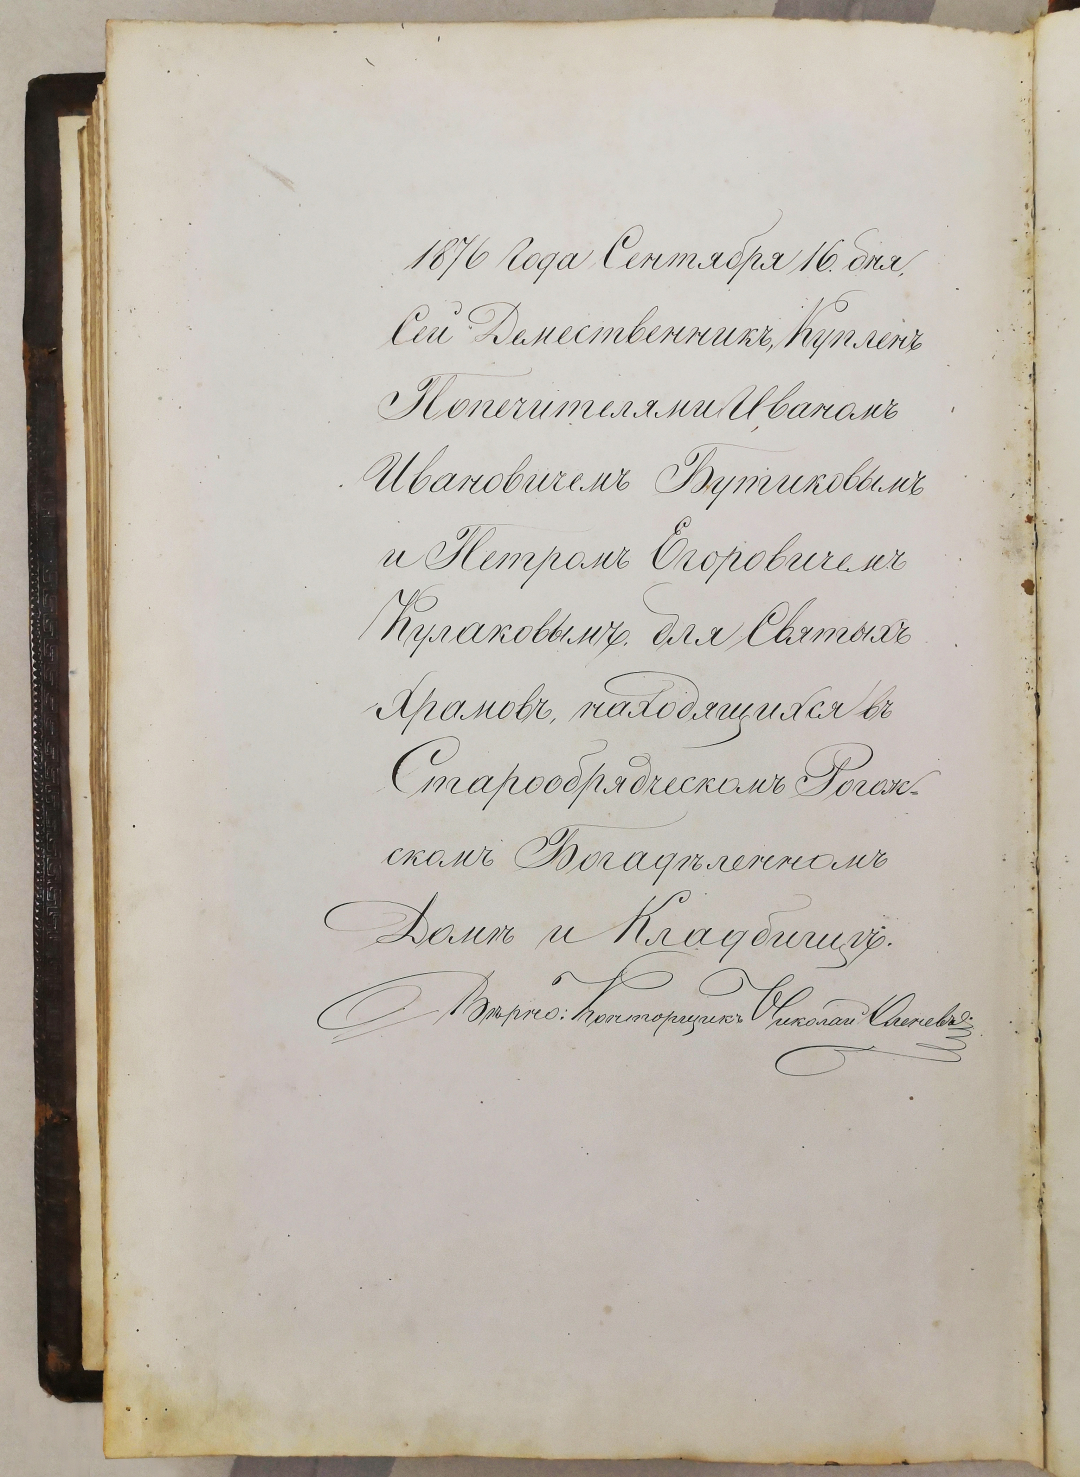 1876 Года Сентября 16. дня,
Сей Демественникъ, Купленъ
Попечителями Иваномъ
Ивановичемъ Бутиковымъ
и Петромъ Егоровичемъ
Кулаковымъ. для Святыхъ
Храмовъ, находящихся въ
Старообрядческомъ Рогож-
скомъ Богадѣленномъ
Домѣ и Кладбищѣ.
Вѣрно: Конторщикъ Николай